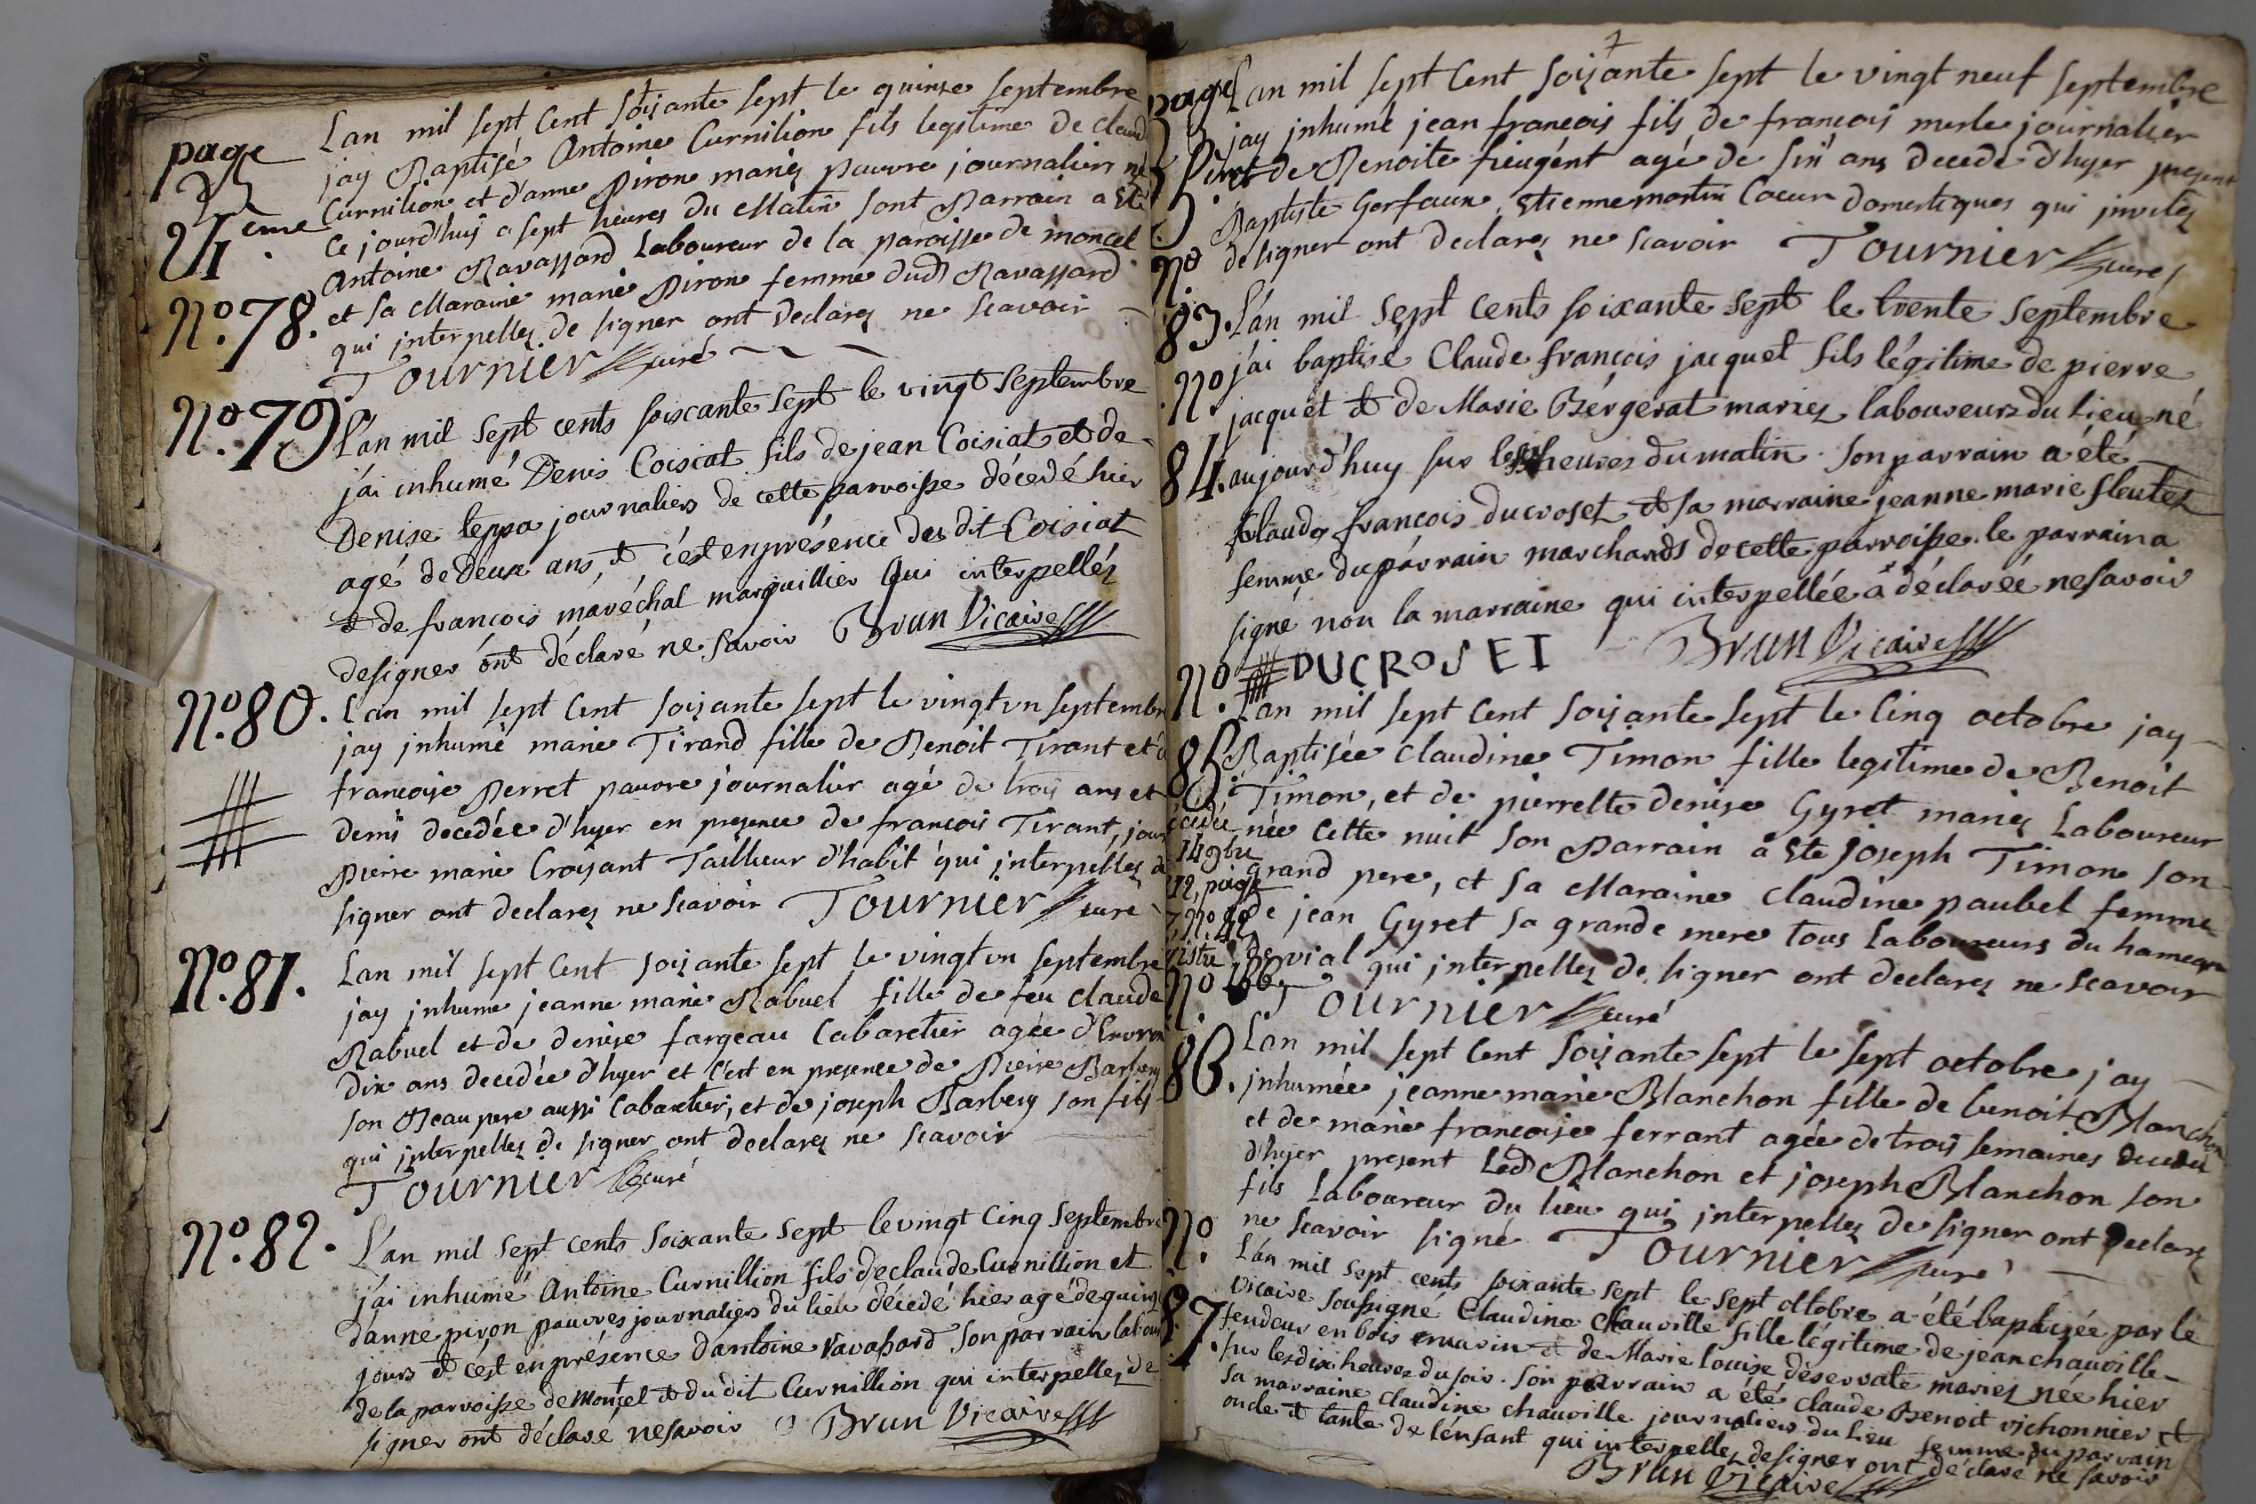 page
21 eme.
Lan mil sept Cent soixante sept le quinze septembre
jay Baptisé Antoine Curnilion fils legitime de claud
Curnilion et d'anne Piron mariez pauvre journalier né
Ce jourd'huy a sept heures du Matin sont Parrain a Eté
Antoine Ravassard Laboureur de la paroisse de moncel
No. 78. et sa Maraine marie Piron femme dud Ravassard
qui interpellez de signer ont declarez ne scavoir
Tournier curé
No. 79 L'an mil sept cents soixante sept le vingt septembre
j'ai inhumé Denis Coisiat fils de jean Coisiat et de
Denise teppa journaliers de cette parroisse décédé hier
agé de deux ans, et c'est en présence du dit Coisiat
et de françois maréchal marguillier qui interpellés
de signer ont déclaré ne savoir Brun Vicaire
No. 80. Lan mil sept Cent soixante sept le vingt vn septembre
jay inhumé marie Tirand fille de Benoit Tirant et d
francoise Perret pauvre journalier agé de trois ans et
demi decedée d'hyer en presence de francois Tirant, jour
Pierre marie Croisant Tailleur d'habit qui interpellez de
signer ont declarez ne scavoir Tournier curé
No. 81. Lan mil sept Cent soixante sept le vingt vn septembre
jay inhume jeanne marie Rabuel fille de feu claude
Rabuel et de denise fargeau Cabaretier agée d'Environ
dix ans decedée d'hyer et c'est en presence de Pierre Barbery
son Beau pere aussi Cabaretier, et de joseph Barbery son fils
qui interpellez de signer ont declarez ne scavoir
Tournier curé
No. 82. L'an mil sept cents soixante sept le vingt cinq septembre
j'ai inhumé Antoine Curnillion fils de claude Curnillion et
d'anne piron pauvres journaliers du lieu décédé hier agé de quinze
jours et c'est en présence d'antoine ravassard son parrain labour
de la parroisse de moncel et du dit Curnillion qui interpellez de
signer ont déclaré ne savoir Brun Vicaire
page Lan mil sept Cent soixante sept le vingt neuf septembre
jay inhumé jean francois fils de francois merle journalier
et de Benoite fieugént agé de six ans decedé d'hyer present
Baptiste Gorfaux, Etienne martin Coeur domestiques qui invitez
de signer ont declarez ne scavoir Tournier curé
No
83. L'an mil sept cents soixante sept le trente septembre
j'ai baptisé Claude françois jacquet fils légitime de pierre
No. jacquet et de Marie Bergerat mariez laboureurs du lieu né
84. aujourd'huy sur les heures du matin. son parrain a été
Claude françois ducroset et sa marraine jeanne marie fleutet
femme du parrain marchands de cette parroisse. le parrain a
signé non la marraine qui interpellée a déclarée ne savoir
DUCROSET Brun Vicaire
No. Lan mil sept Cent soixante sept le Cinq octobre jay
85. Baptisée claudine Timon fille legitime de Benoit
Timon, et de pierrette denise Gyret mariez Laboureur
née Cette nuit son Parrain a Ete joseph Timon son
grand pere, et sa Maraine claudine paubel femme
de jean Gyret sa grande mere tous Laboureurs du hameau
de vial qui interpellez de signer ont declarez ne scavoir
Tournier curé
décédée
14 9bre
12, page
7, No. 42
No.
86. Lan mil sept Cent soixante sept le sept octobre jay
inhumée jeanne marie Blanchon fille de benoit Blanchon
et de marie francoise ferrant agée de trois semaines decedée
d'hyer present Led Blanchon et joseph Blanchon son
fils Laboureur du lieu qui interpellez de signer ont declarez
ne scavoir signé Tournier curé
No. L'an mil sept cents soixante sept le sept octobre a été baptisée par le
87. vicaire soussigné Claudine Chauville fille légitime de jean chauville
fendeur en bois et de Marie louise déservate mariez née hier
sur les dix heures du soir. son parrain a été claude Benoit vichonnier et
sa marraine claudine chauville journaliers du lieu femme du parrain
oncle et tante de l'enfant qui interpellez de signer ont déclaré ne savoir
Brun Vicaire